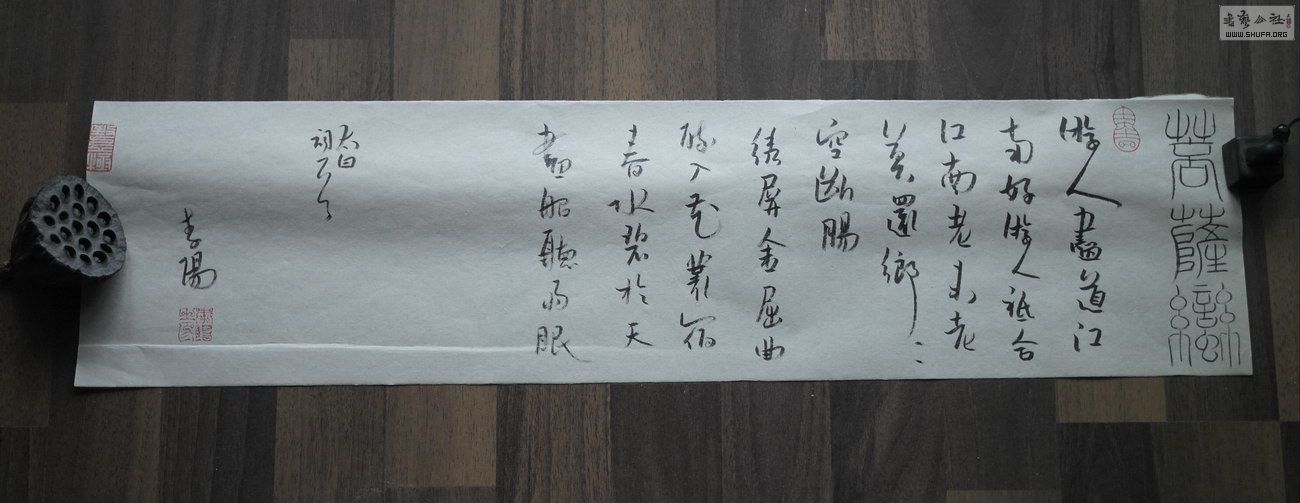 菩薩蠻
游人盡道江
南好游人祗合
江南老未老
莫還鄉〻
空斷腸
綉屏金屈曲
醉入花叢宿
春水碧於天
畫船聽雨眠
太白
詞
書藝公社
WWW.SHUFA.ORG